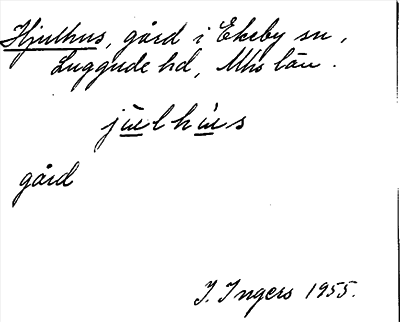 Hjulhus, gård i Ekeby sn,
Luggude hd, Mhs län.
jụ̈lhụ̈s
gård
I. Ingers 1955.